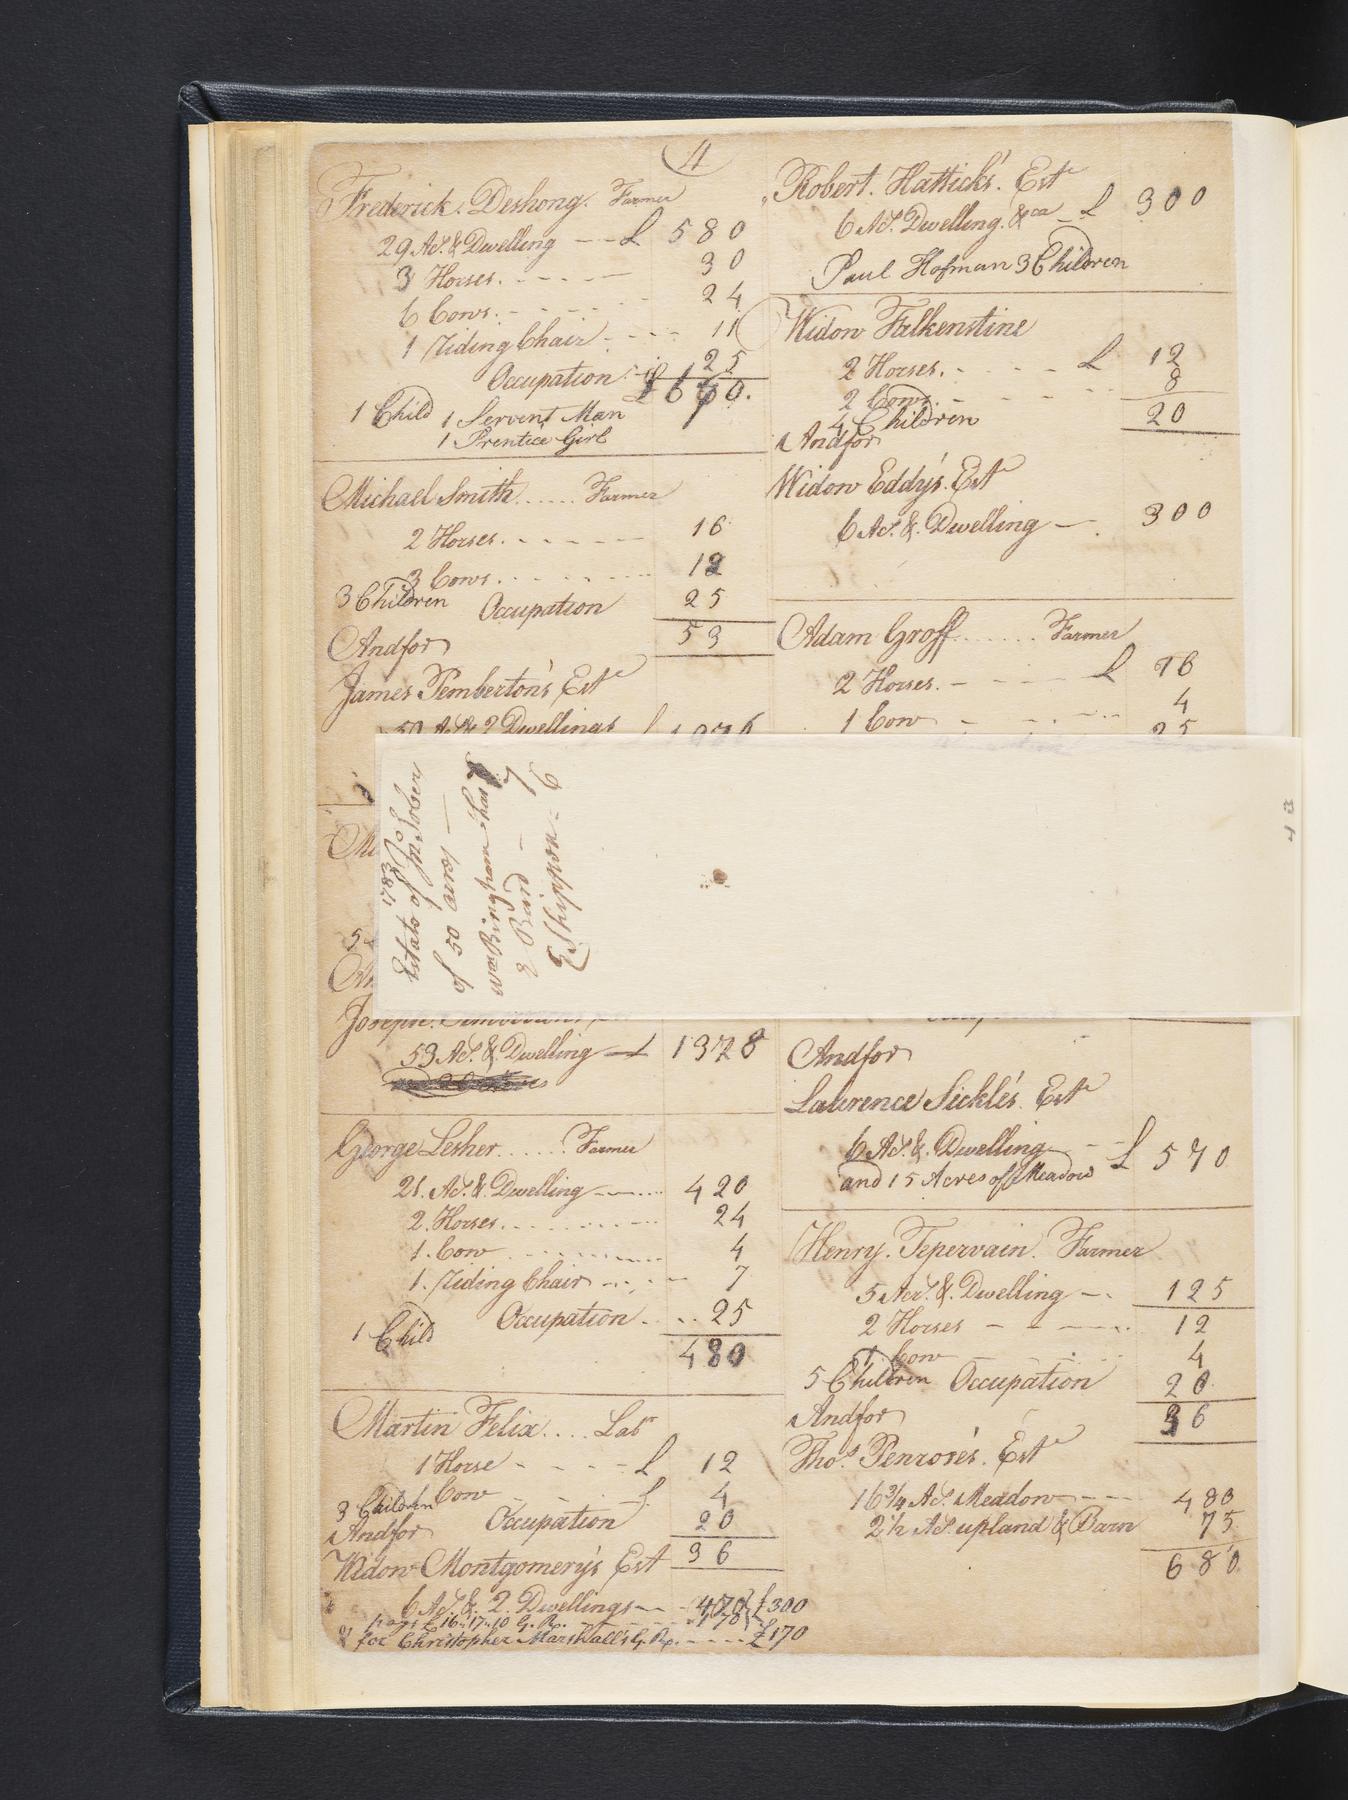 4
Frederick. Deshong. Farmer
29 As. & Dwelling £ 580
3 Horses. 30
6 Cows. 24
1 Riding Chair 11
Occupation 25
£ 670.
1 Child 1 Servent Man
1 Prentice Girl
Michael Smith ..... Farmer
2 Horses. 16
3 Cows. 12
3 Children Occupation 25
53
Andfor
James Pemberton's Este
50 As. & 2 Dwellings
53 As. & Dwelling £ 1378
George Lesher ...... Farmer
21. As. & Dwelling 420
2. Horses. 24
1. Cow 4
1. Riding Chair 7
1 Child Occupation 25
480
Martin Felix .... Labr
1 Horse £ 12
Cow 4
3 Children
Andfor Occupation 20
36
Widow Montgomery's Est
6 As. & 2. Dwellings 470 £300
pays £16..17..10 G. R. 170
& for Christopher Marshall's G. R. £170
Robert. Hattick's. Este
6 As. Dwelling. &ca £ 300
Paul Hofman 3 Children
Widow Falkenstine
2 Horses. £ 12
2 Cows. 8
4 Children 20
Andfor
Widow Eddy's. Este
6 As. &. Dwelling 300
Adam Groff ....... Farmer
2 Horses. £ 16
1 Cow 4
25
1783
Estate of Jno. Jober
of 50 acres
wm Bingham has 7
2 Baird
E Shippen 6
Andfor
Lawrence Sickle's. Este
6 As. &. Dwelling
and 15 Acres off Meadow £ 570
Henry. Tepervain. Farmer
5 Acr. &. Dwelling 125
2 Horses 12
1. Cow 4
5 Children Occupation 20
36
Andfor
Thos. Penrose's. Este
16 3/4 As. Meadow
2 1/2 As. upland & Barn 75
680